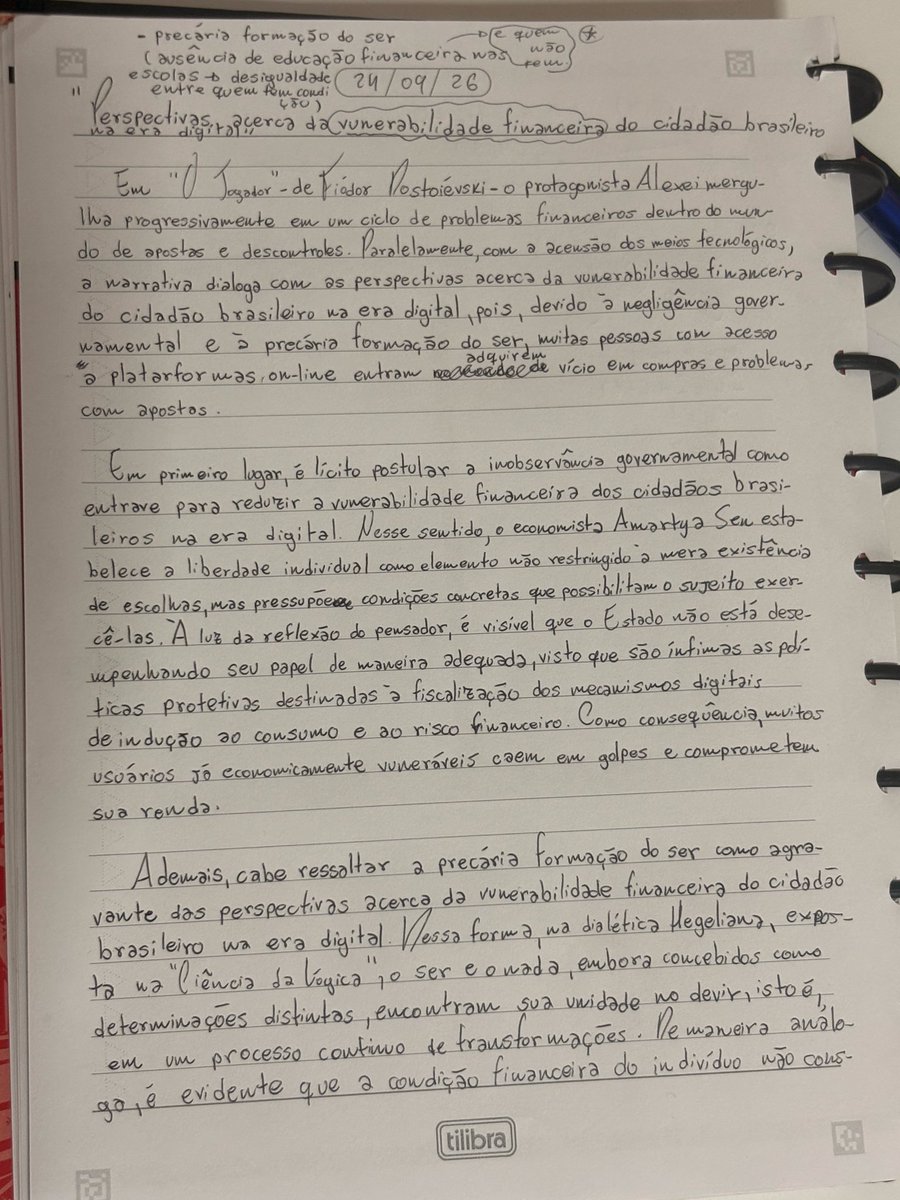 - precária formação do ser
(ausência de educação financeira nas
escolas → desigualdade
entre quem tem condi
ção)
→ de quem
não
tem
*
24/09/26
"Perspectivas acerca da vunerabilidade financeira do cidadão brasileiro
na era digital"
Em "O Jogador" - de Fiódor Dostoiévski - o protagonista Alexei mergu-
lha progressivamente em um ciclo de problemas financeiros dentro do mun-
do de apostas e descontroles. Paralelamente, com a acensão dos meios tecnológicos,
a narrativa dialoga com as perspectivas acerca da vunerabilidade financeira
do cidadão brasileiro na era digital, pois, devido à negligência gover-
namental e à precária formação do ser, muitas pessoas com acesso
à platarformas on-line entram adquirem vício em compras e problemas
com apostas.
Em primeiro lugar, é lícito postular a inobservância governamental como
entrave para reduzir a vunerabilidade financeira dos cidadãos brasi-
leiros na era digital. Nesse sentido, o economista Amartya Sen esta-
belece a liberdade individual como elemento não restringido à mera existência
de escolhas, mas pressupõe condições concretas que possibilitam o sujeito exer-
cê-las. À luz da reflexão do pensador, é visível que o Estado não está dese-
mpenhando seu papel de maneira adequada, visto que são ínfimas as polí-
ticas protetivas destinadas à fiscalização dos mecanismos digitais
de indução ao consumo e ao risco financeiro. Como consequência, muitos
usuários já economicamente vuneráveis caem em golpes e comprometem
sua renda.
Ademais, cabe ressaltar a precária formação do ser como agra-
vante das perspectivas acerca da vunerabilidade financeira do cidadão
brasileiro na era digital. Dessa forma, na dialética Hegeliana, expos-
ta na "Ciência da Lógica", o ser e o nada, embora concebidos como
determinações distintas, encontram sua unidade no devir, isto é,
em um processo contínuo de transformações. De maneira análo-
ga, é evidente que a condição financeira do indivíduo não cons-
tilibra